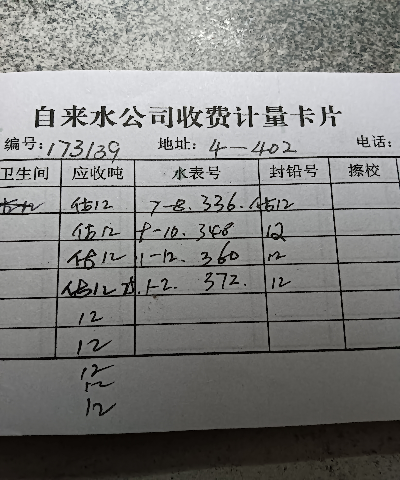 自来水公司收费计量卡片
编号:173139 地址:4-402 电话:
卫生间 应收吨 水表号 封铅号 擦校
估12 7-8. 336. 估12
估12 9-10. 348 12
估12 11-12. 360 12
估12 1-2. 372. 12
12
12
12
12
12